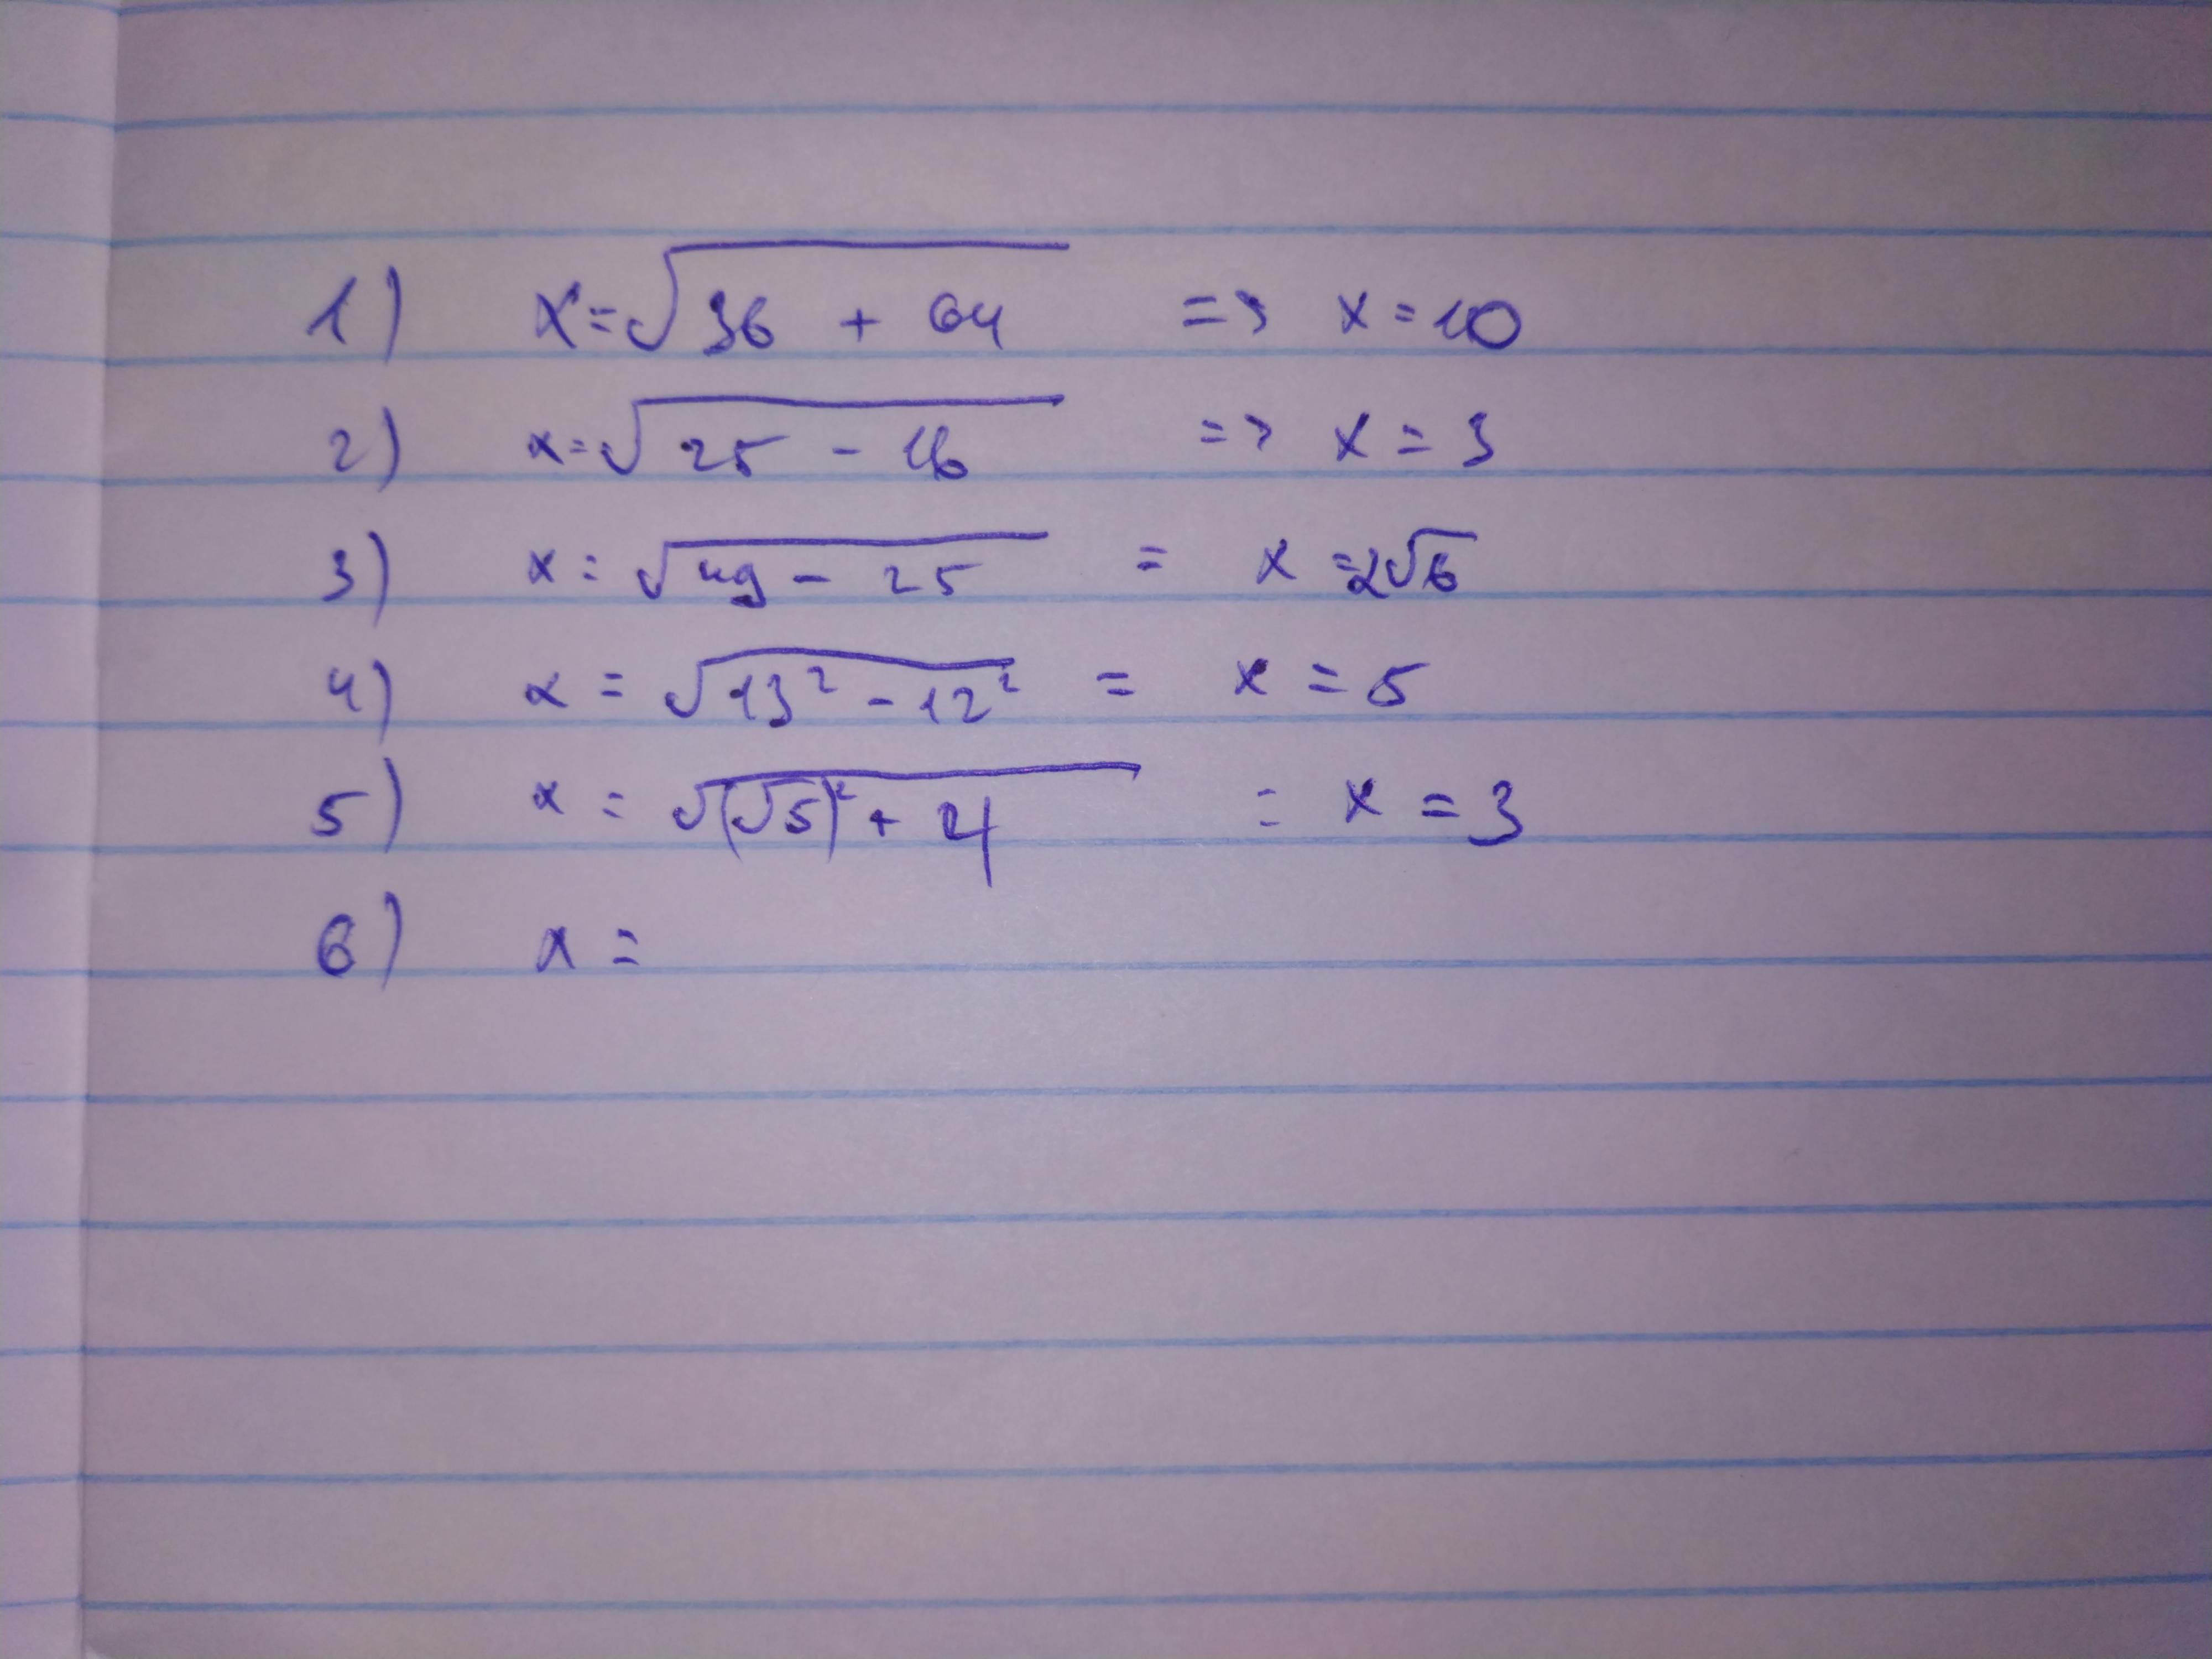 1) x = √36 + 64 => x = 10
2) x = √25 - 16 => x = 3
3) x = √49 - 25 = x = 2√6
4) x = √13² - 12² = x = 5
5) x = √(√5)² + 4 = x = 3
6) x =